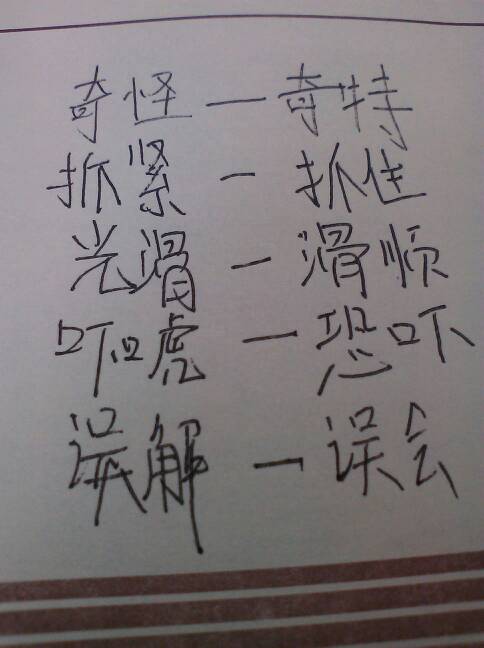 奇怪—奇特
抓紧—抓住
光滑—滑顺
吓唬—恐吓
误解—误会